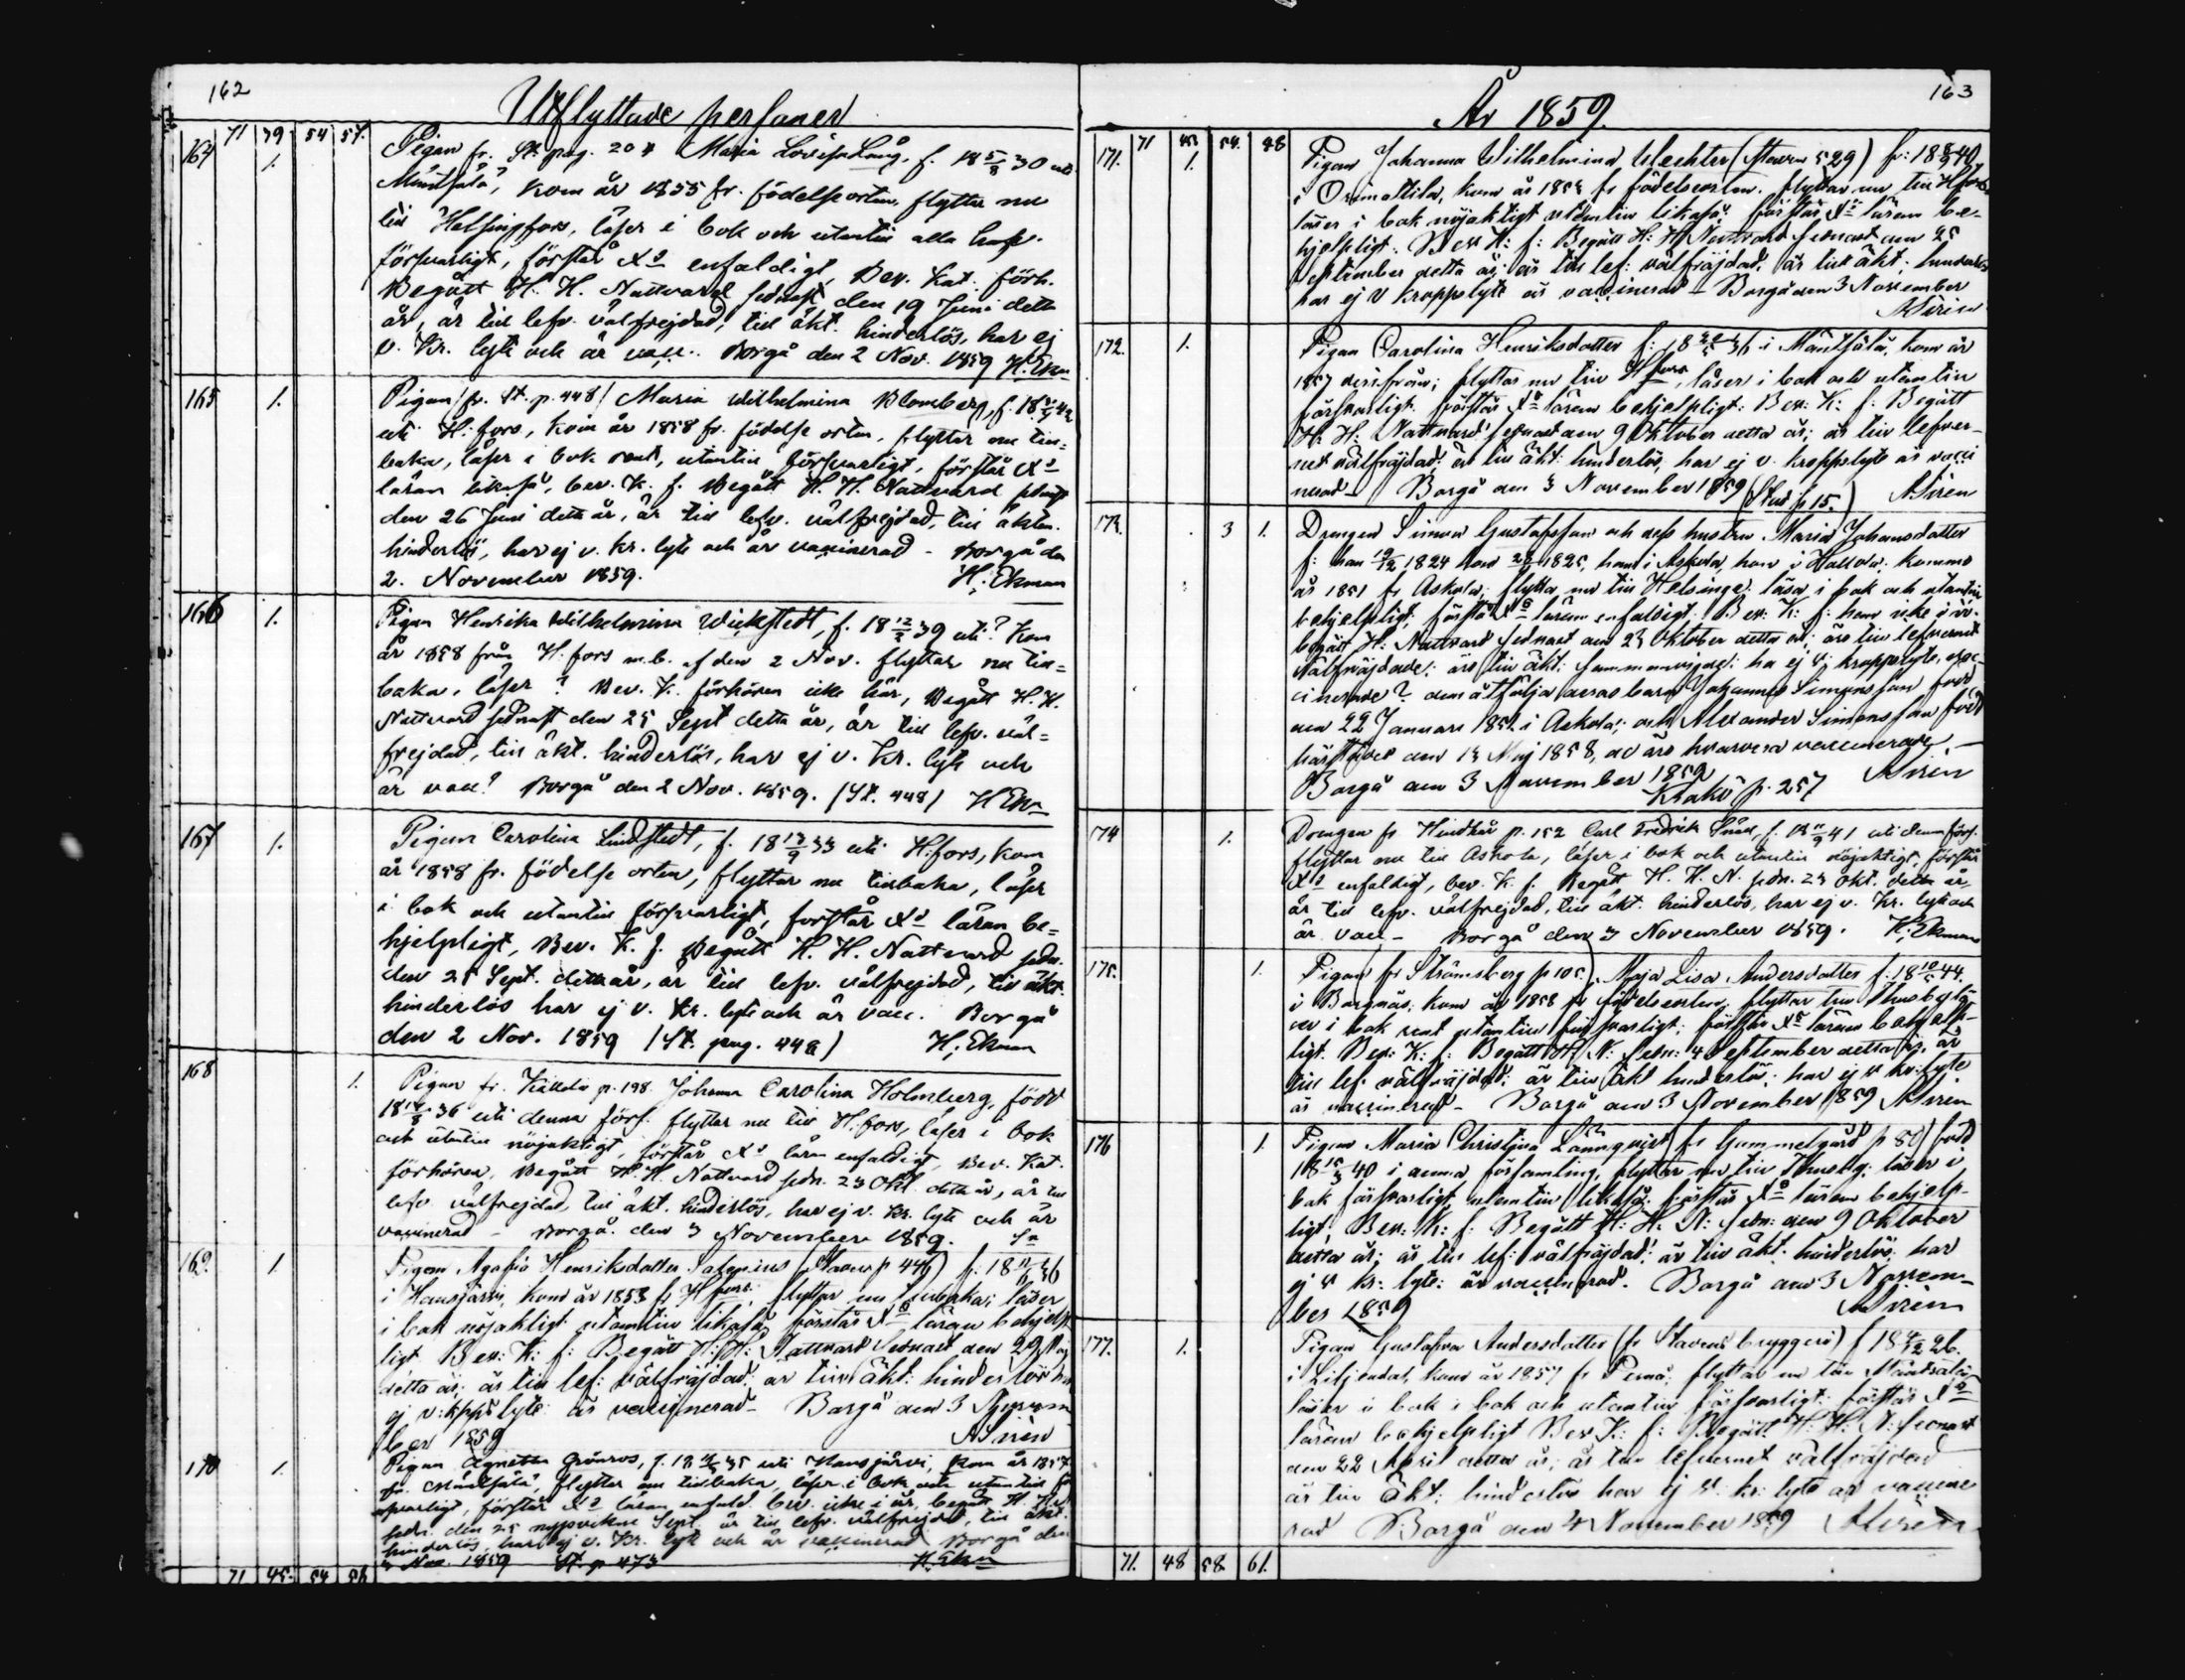 162
Utflyttade personer
71 39 54 57.
164 1. Pigan fr. St. pag. 204 Maria Lovisa Lång, f. 18 5/8 30 uti
Mäntsälä, kom år 1855 fr. födelseorten, flyttar nu
till Helsingfors, läser i bok och utantill alla
försvarligt, förstår Xi enfaldigt, Bev. Kat. förh.
Begått H. H. Nattvard sednast den 19 Juni detta
år, är till lefv. välfrejdad, till äkt. hinderlös, har ej
v. Kr. lyte och är vacc. Borgå den 2 Nov. 1859 H. Ekm
165 1. Pigan (fr. St. p. 448) Maria Wilhelmina Blomberg, f. 18
uti H:fors, kom år 1858 fr. födelse orten, flyttar nu till=
baka, läser i bok rent, utantill försvarligt, förstår Xi
läran likaså, bev. K. f. Begått H. H. Nattvard sednast
den 26 Juni detta år, är till lefv. välfrejdad, till äkten.
hinderlös, har ej v. kr. lyte och är vaccinerad - Borgå den
2. November 1859. H. Ekman
166 1. Pigan Henrika Wilhelmina Wickstedt, f. 18 12/2 39 uti? Kom
år 1858 från H.fors m.b. af den 2 Nov. flyttar nu till=
baka, läser? Bev. K. förhören icke här, Begått H. H.
Nattvard sednast den 25 Sept detta år, är till lefv. väl=
frejdad, till äkt. hinderlös, har ej v. Kr. lyte och
är vacc? Borgå den 2 Nov. 1859. (St. 448) H Ekm
167 1. Pigan Carolina Lindstedt, f. 18 13/9 33 uti H:fors, kom
år 1858 fr. födelse orten, flyttar nu tillbaka, läser
i bok och utantill försvarligt, förstår Xi läran be=
hjelpligt, Bev. K. f. Begått H. H. Nattvard sedn.
den 25 Sept. detta år, är till lefv. välfrejdad, till äkt.
hinderlös har ej v. kr. lyte och är vacc. Borgå
den 2 Nov. 1859 (St. pag. 448) H. Ekman
168 1. Pigan fr. Kiiala p. 198 Johanna Carolina Holmberg, född
18 36 uti denna förs. flyttar nu till H:fors, läser i bok
och utantill nöjaktigt, förstår Xi läran enfaldigt, Bev. Kat.
förhören, Begått H. H. Nattvard sedn. 23 Okt. detta år, är till
lefv. välfrejdad, till äkt. hinderlös, har ej v. kr. lyte och är
vaccinerad - Borgå den 3 November 1859.
169. 1. Pigan Agafia Henriksdotter Salenius (Staden p 446) f. 18 36
i Hausjärvi, kom år 1853 fr H:fors; flyttar nu tillbaka; läser
i bok nöjaktigt utantill likaså, förstår Xi läran behjelp
ligt. Bev: K: f: Begått H: H: Nattvard sednast den 29 Maj
detta år; är till lef: välfräjdad: är till äkt: hinderlös har
ej v: kpps lyte: är vaccinerad - Borgå den 3 Novem-
ber 1859 A Siren
170 1. Pigan Agnetta Grönros, f. 18 35 uti Hausjärvi, kom år 1857
fr. Mäntsälä, flyttar nu tillbaka, läser i bok och utantill för
svarligt, förstår Xi läran enfald. bev. icke i år, begått H. H. N.
sedn. den 25 Sept. är till lefv. välfrejdad, till äkt.
hinderlös, har ej v. Kr. lyte och är vaccinerad Borgå den
3 Nov. 1859 St. p 473 H. Ekm
71 45. 54 58
163
År 1859.
71 45. 54. 58
171. 1. Pigan Johanna Wilhelmina Wechter (Staden 529) f: 18 40
i Orimattila, kom år 1858 fr födelseorten. flyttar nu till H:fors
läser i bok nöjaktigt utantill likaså: förstår Xi läran be-
hjelpligt. Bev K: f: Begått H: H Nattvard sednast den 25
September detta år; är till lef: välfräjdad: är till äkt: hinderlös
har ej v kroppslyte är vaccinerad - Borgå den 3 November
A Siren
172. 1. Pigan Carolina Henriksdotter f: 18 36 i Mäntsälä, kom år
1857 derifrån; flyttar nu till H:fors, läser i bok och utantill
försvarligt. förstår Xi läran behjelpligt: Bev: K: f: Begått
H: H: Nattvard sednast den 9 Oktober detta år; är till lefver-
net välfräjdad: är till äkt: hinderlös, har ej v. kroppslyte är vacci
nerad - Borgå den 3 November 1859 (Stad p 15.) A Siren
173. 3 1. Drengen Simon Gustafsson och dess hustru Maria Johansdotter
f: han 19/12 1824 hon 1825, han i Askola, hon i Hollola. kommo
år 1851 fr Askola; flytta nu till Helsinge: läsa i bok och utantill
behjelpligt; förstå Xi läran enfaldigt. Bev: K: f: hon icke i år.
begått H: Nattvard sednast den 23 Oktober detta år; äro till lefvernet
välfräjdade: äro till äkt: sammanvigde: ha ej v: kroppslyte, vac-
cinerade? dem åtfölja deras barn Johannes Simonsson född
den 22 Januari 1852 i Askola; och Alexander Simonsson född
härstädes den 13 Maj 1858, de äro hvardera vaccinerade. -
Borgå den 3 November 1859 A Siren
Kråkö p. 257
174 1. Drengen fr Hindhår p. 152 Carl Fredrik f. 18 11/9 41 uti denna förs.
flyttar nu till Askola, läser i bok och utantill nöjaktigt, förstår
Xi enfaldigt, bev. K. f. Begått H. H. N. sedn. 23 Okt. detta år,
är till lefv. välfrejdad, till äkt. hinderlös, har ej v. kr. lyte och
är vacc - Borgå den 3 November 1859. H. Ekman
175. 1. Pigan (fr Strömsberg p 105) Maja Lisa Andersdotter f. 18 44.
i Borgnäs; kom år 1858 fr födelseorten. flyttar till Thusby lä-
ser i bok rent utantill försvarligt; förstår Xi läran behjelp-
ligt. Bev: K: f: Begått H: N: sedn: 4 September detta år, är
till lef. välfräjdad; är till äkt hinderlös; har ej v kr: lyte
är vaccinerad - Borgå den 3 November 1859 A Siren
176 1. Pigan Maria Christina Lönnqvist (fr Gammelgård p 80) född
18 40 i denna församling, flyttar nu till Thusby: läser i
bok försvarligt utantill likaså. förstår Xi läran behjelp-
ligt, Bev: K: f: Begått H: H: N: sedn: den 9 Oktober
detta år; är till lef: välfräjdad: är till äkt: hinderlös: har
ej v kr: lyte: är vaccinerad. Borgå den 3 Novem-
ber 1859 A Siren
177. 1. Pigan Gustafva Andersdotter (fr Stadens bryggeri) f 18 26.
i Liljendal, kom år 1857 fr Pernå, flyttar nu till Mäntsälä
läser i bok i bok och utantill försvarligt: förstår Xi
läran behjelpligt Bev K: f: Begått H: H: N: sednast
den 22 April detta år; är till lefvernet välfräjdad
är till äkt: hinderlös har ej v: kr: lyte är vaccine
rad Borgå den 4 November 1859 A Siren
71. 48 58. 61.